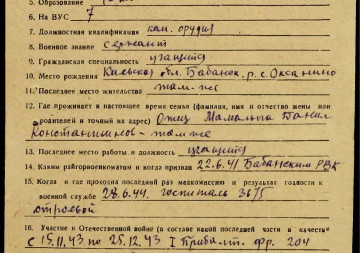 5. Образование
6. На ВУС 7
7. Должностная квалификация ком. орудия
8. Военное звание сержант
9. Гражданская специальность учащийся
10. Место рождения Киевская обл. Бабанск. р. с. Оксанино
11. Последнее место жительства там-же
12. Где проживает в настоящее время семья (фамилия, имя и отчество жены или
родителей и точный их адрес) Отец
там-же
13. Последнее место работы и должность учащийся
14. Каким райгорвоенкоматом и когда призван 22.6.41 Бабанским РВК
15. Когда и где проходил последний раз медкомиссию и результат годности к
военной службе 28.6.44. госпиталь 3675
строевой
16. Участие в Отечественной войне (в составе какой последней части в качестве
с 15.11.43 по 25.12.43 I Прибалт. фр. 204